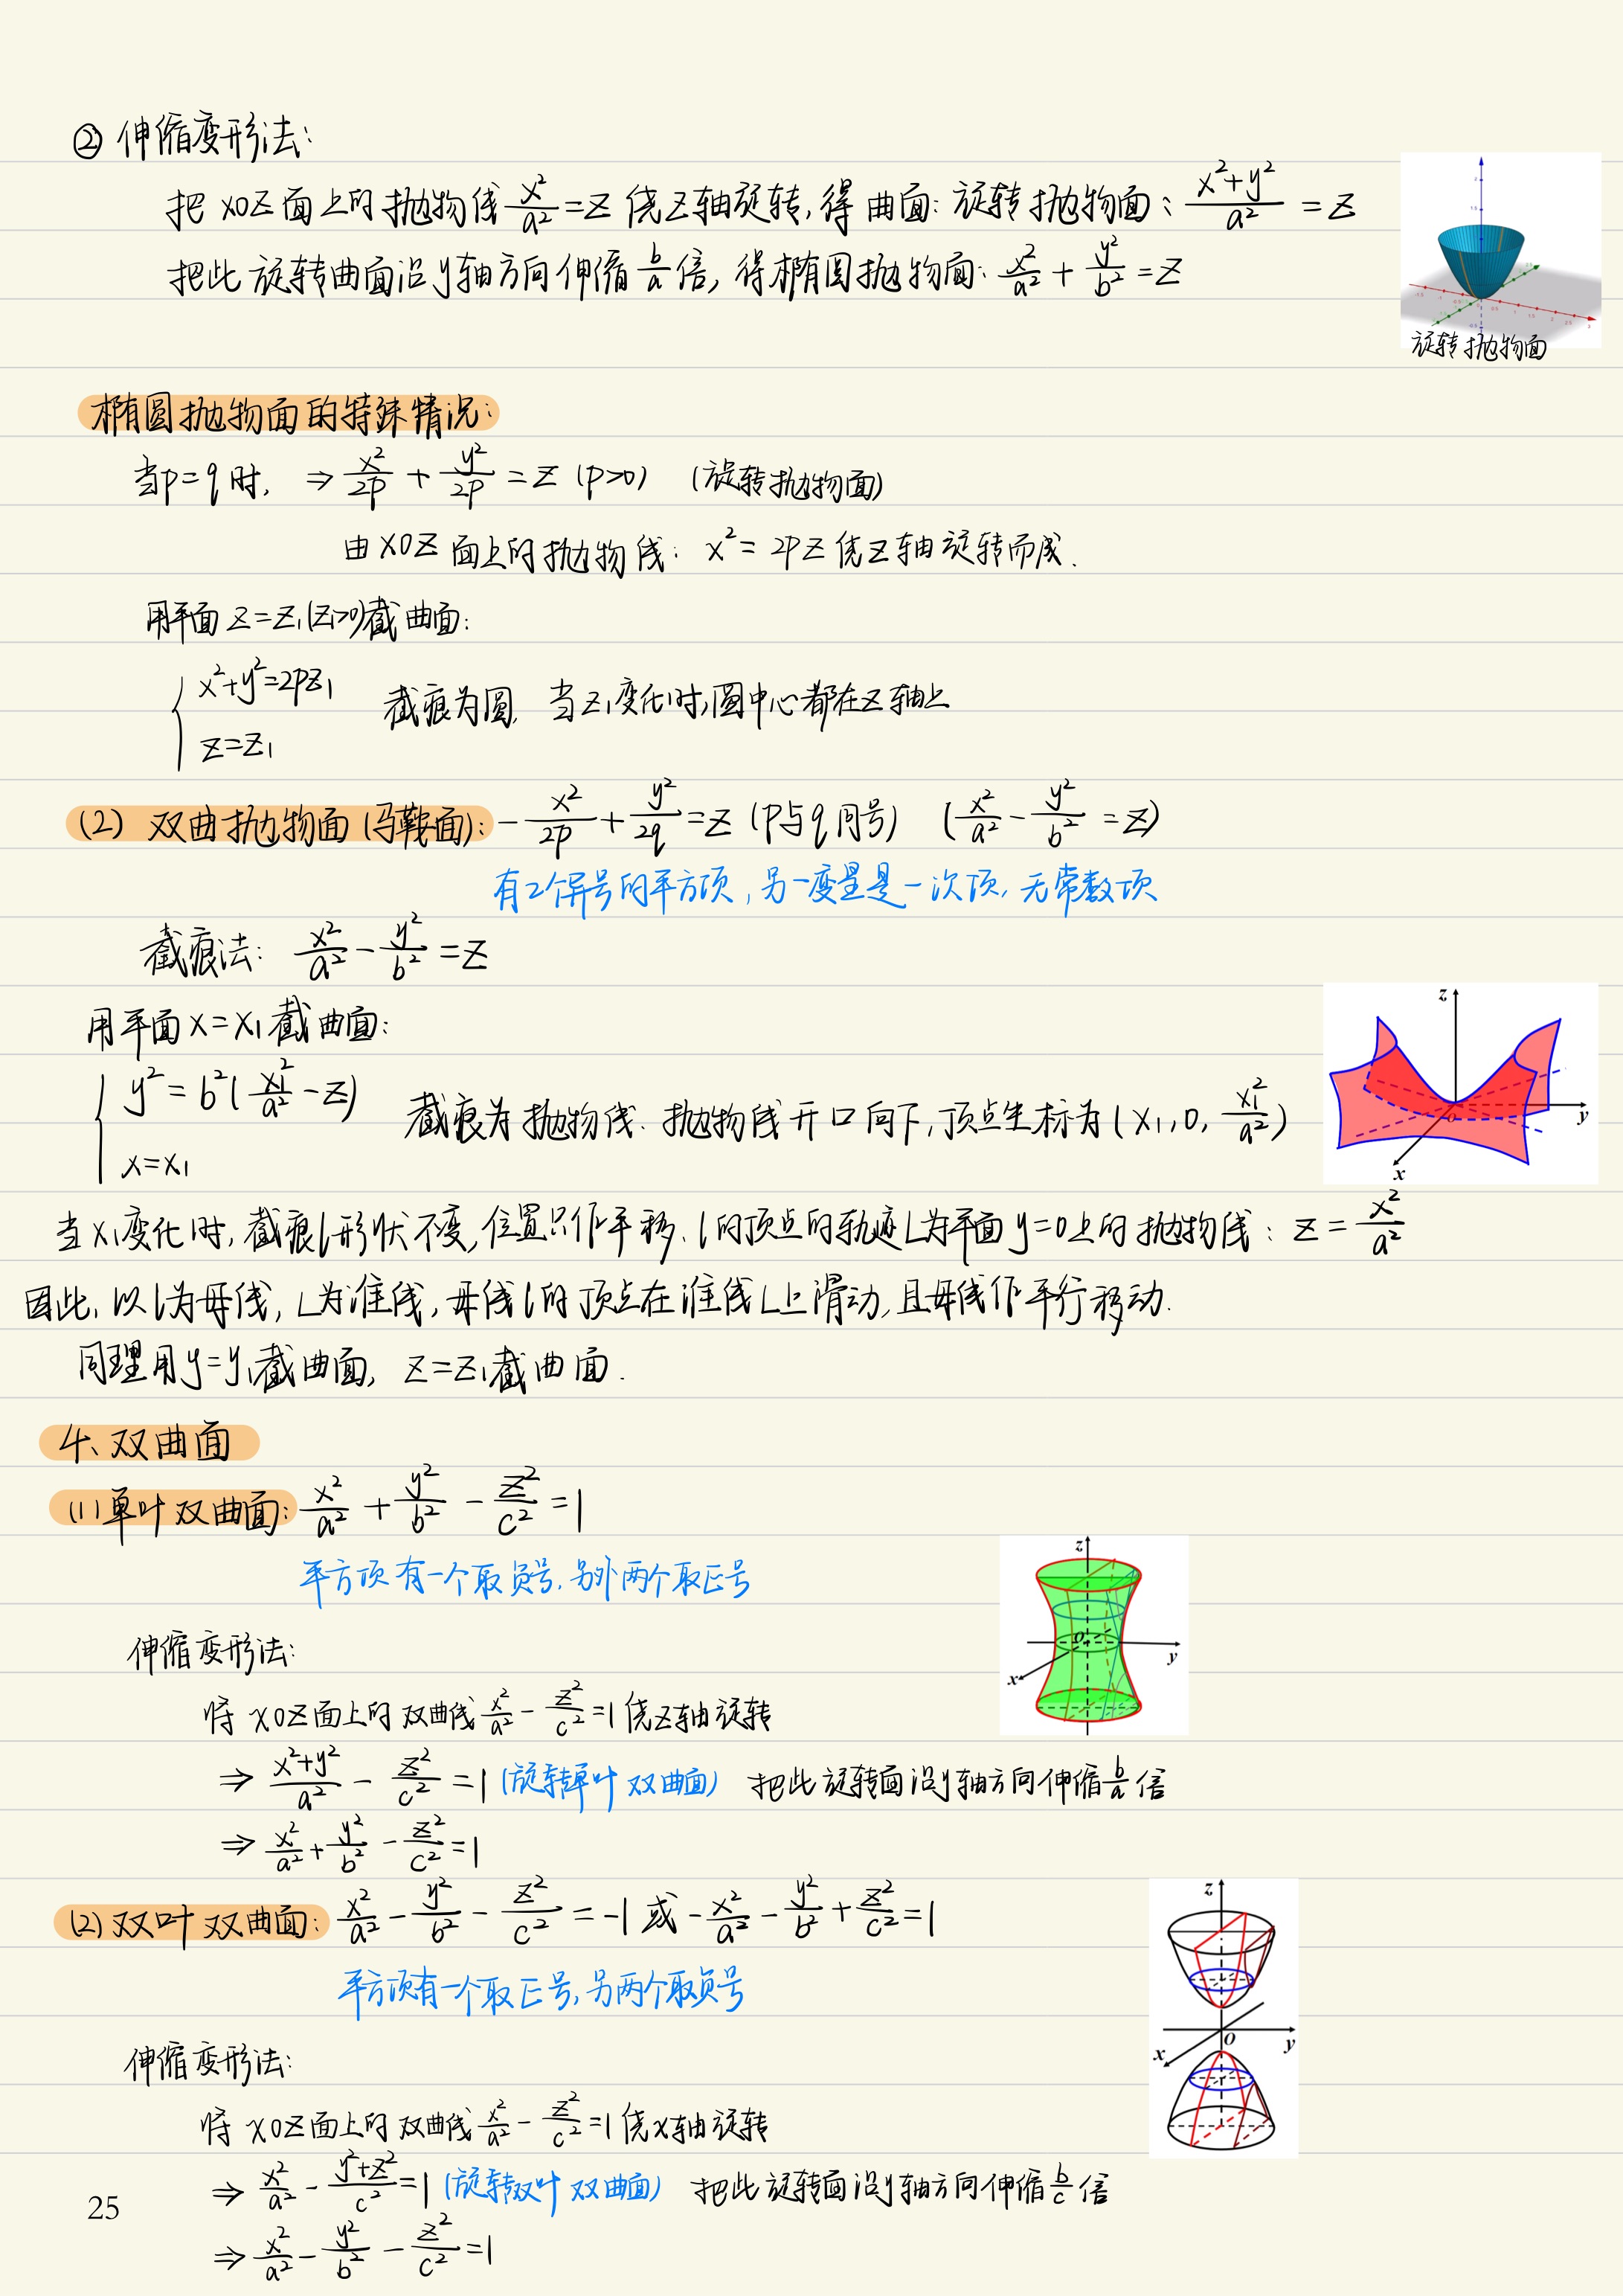 ② 伸缩变形法:
把 xoz 面上的抛物线 x²/a² = z 绕z轴旋转, 得曲面: 旋转抛物面: (x²+y²)/a² = z
把此旋转曲面沿y轴方向伸缩 b/a 倍, 得椭圆抛物面: x²/a² + y²/b² = z
旋转抛物面
椭圆抛物面的特殊情况:
当p=q时, ⇒ x²/2p + y²/2p = z (p>0) (旋转抛物面)
由xoz面上的抛物线: x² = 2pz 绕z轴旋转而成.
用平面 z=z₁(z₁>0)截曲面:
{ x²+y²=2pz₁
z=z₁
截痕为圆. 当z₁变化时,圆中心都在z轴上
(2) 双曲抛物面(马鞍面): -x²/2p + y²/2q = z (p与q同号) (x²/a² - y²/b² = z)
有2个异号的平方项, 另一变量是一次项, 无常数项
截痕法: x²/a² - y²/b² = z
用平面x=x₁截曲面:
{ y² = b²(x₁²/a² - z)
x=x₁
截痕为抛物线. 抛物线开口向下, 顶点坐标为(x₁, 0, x₁²/a²)
z
o
y
x
当x₁变化时, 截痕l形状不变, 位置只作平移. l的顶点的轨迹L为平面y=0上的抛物线: z = x²/a²
因此, 以l为母线, L为准线, 母线l的顶点在准线L上滑动, 且母线作平行移动.
同理用y=y₁截曲面, z=z₁截曲面.
4、双曲面
(1) 单叶双曲面: x²/a² + y²/b² - z²/c² = 1
平方项有一个取负号, 另外两个取正号
z
o
y
x
伸缩变形法:
将xoz面上的双曲线 x²/a² - z²/c² = 1 绕z轴旋转
⇒ (x²+y²)/a² - z²/c² = 1 (旋转单叶双曲面) 把此旋转面沿y轴方向伸缩 b/a 倍
⇒ x²/a² + y²/b² - z²/c² = 1
(2) 双叶双曲面: x²/a² - y²/b² - z²/c² = -1 或 -x²/a² - y²/b² + z²/c² = 1
平方项有一个取正号, 另两个取负号
z
o
y
x
伸缩变形法:
将xoz面上的双曲线 x²/a² - z²/c² = 1 绕x轴旋转
⇒ x²/a² - (y²+z²)/c² = 1 (旋转双叶双曲面) 把此旋转面沿y轴方向伸缩 b/c 倍
⇒ x²/a² - y²/b² - z²/c² = 1
25